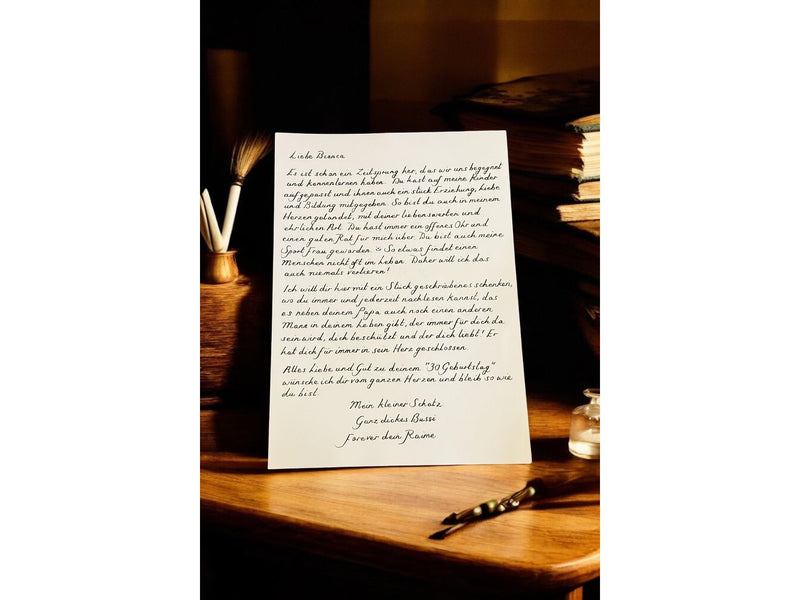 Liebe Bianca
Es ist schon ein Zeitsprung her, das wir uns begegnet
und kennenlernen haben. Du hast auf meine Kinder
aufgepasst und ihnen auch ein stück Erziehung, Liebe
und Bildung mitgegeben. So bist du auch in meinem
Herzen gelandet, mit deiner liebenswerten und
ehrlichen Art. Du hast immer ein offenes Ohr und
einen guten Rat für mich über. Du bist auch meine
Sport Frau geworden. So etwas findet einen
Menschen nicht oft im Leben. Daher will ich das
auch niemals verlieren!
Ich will dir hier mit ein Stück geschriebenes schenken,
wo du immer und jederzeit nachlesen kannst, das
es neben deinem Papa auch noch einen anderen
Mann in deinem Leben gibt, der immer für dich da
sein wird, dich beschützt und der dich liebt! Er
hat dich für immer in sein Herz geschlossen.
Alles Liebe und Gut zu deinem "30 Geburtstag"
wünsche ich dir vom ganzen Herzen und bleib so wie
du bist.
Mein kleiner Schatz
Ganz dickes Bussi
Forever dein Raime